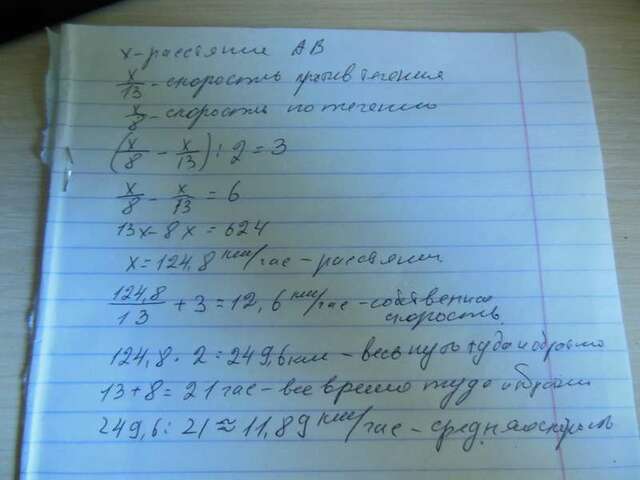 x - расстояние AB
x/13 - скорость против течения
x/8 - скорость по течению
(x/8 - x/13) : 2 = 3
x/8 - x/13 = 6
13x - 8x = 624
x = 124,8 км/час - расстояние
124,8/13 + 3 = 12,6 км/час - собственная скорость
124,8 · 2 = 249,6 км - весь путь туда и обратно
13 + 8 = 21 час - все время туда и обратно
249,6 : 21 ≈ 11,89 км/час - средняя скорость